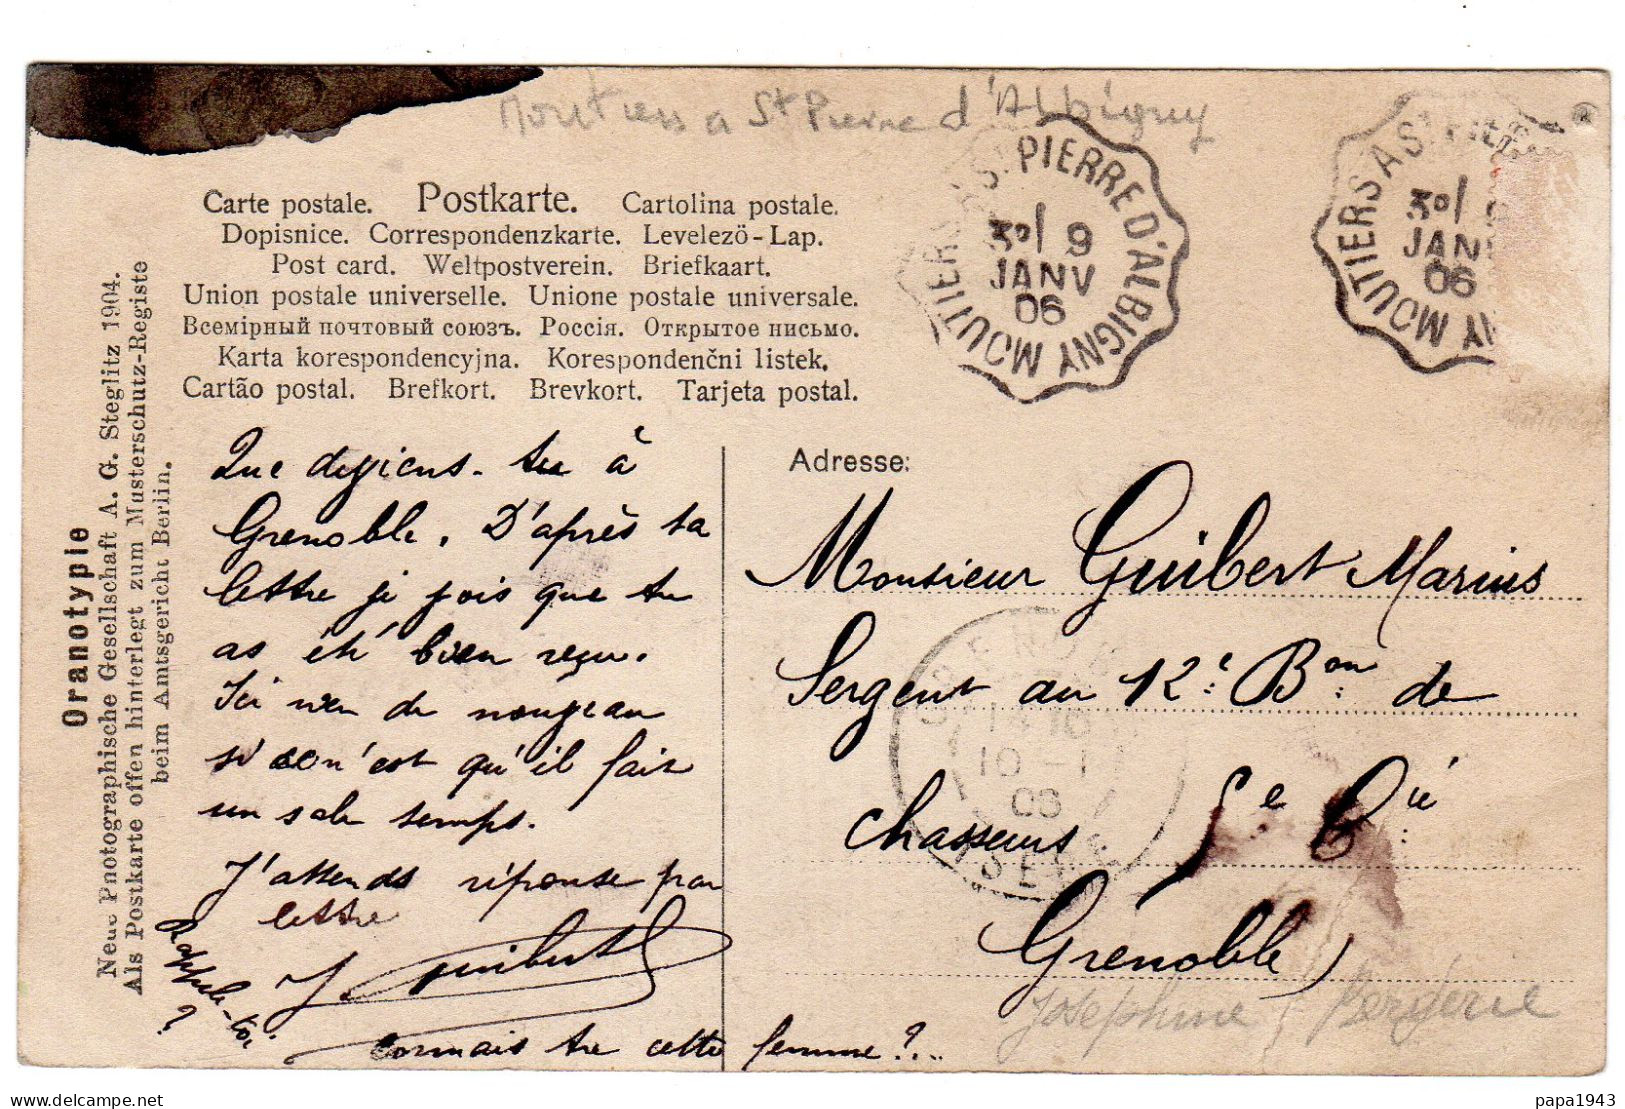 Moutiers a St Pierre d'Albigny
Carte postale. Postkarte. Cartolina postale.
Dopisnice. Correspondenzkarte. Levelezö-Lap.
Post card. Weltpostverein. Briefkaart.
Union postale universelle. Unione postale universale.
Всемірный почтовый союзъ. Россія. Открытое письмо.
Karta korespondencyjna. Korespondenční listek.
Cartão postal. Brefkort. Brevkort. Tarjeta postal.
MOUTIERS A ST PIERRE D'ALBIGNY
3º/ 9
JANV
06
MOUTIERS A ST PIERRE
3º/ 9
JANV
06
Oranotypie
Neue Photographische Gesellschaft A. G. Steglitz 1904.
Als Postkarte offen hinterlegt zum Musterschutz-Registe
beim Amtsgericht Berlin.
Que deviens-tu à
Grenoble. D'après ta
lettre je vois que tu
as été bien reçu.
Ici rien de nouveau
si ce n'est qu'il fait
un sale temps.
J'attends réponse par
lettre
J. Guibert
Rappelle-toi
?
connais tu cette femme ?..
Adresse:
Monsieur Guibert Marius
Sergent au 12e Bon de
chasseurs. 5e Cie
Grenoble
GRENOBLE
10 - 1
06
ISERE
Joséphine
delcampe.net
papa1943